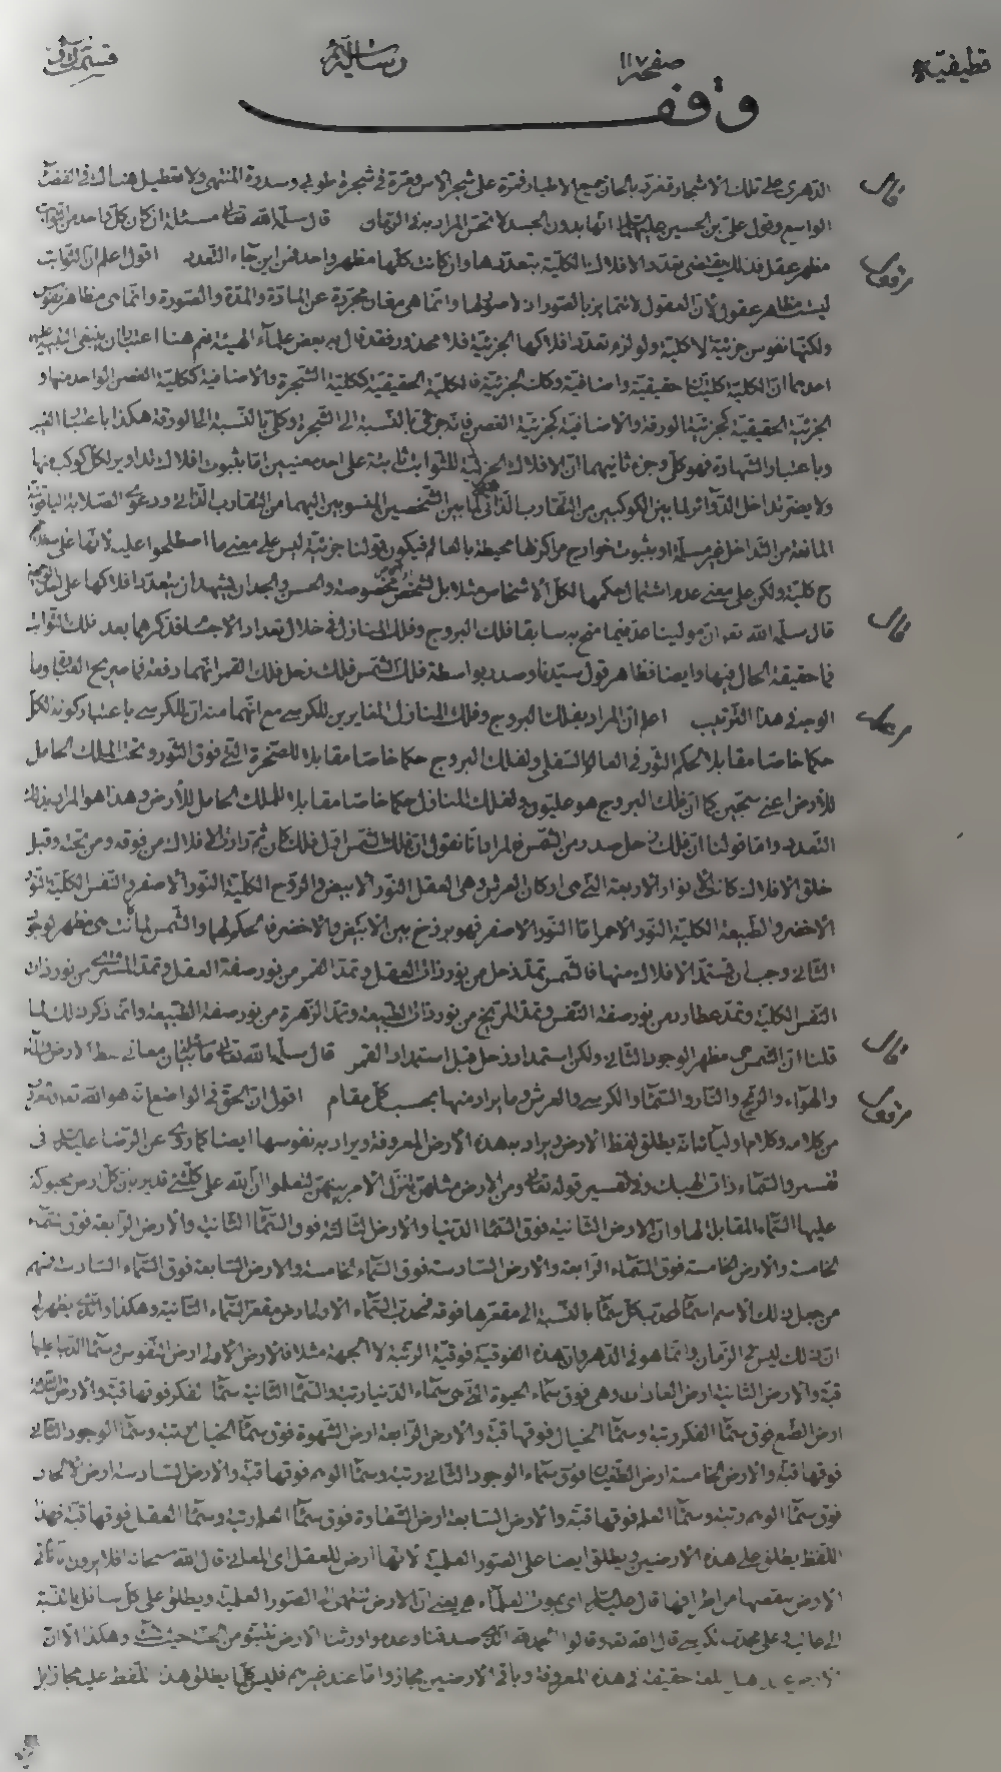 قطيفية صفحه ١١٧ رسالة
وقف
قال
الدهرى على تلك الاشجار فتغرد بالحان جميع الاطيار فمرة على شجر الآس ومرة فى شجرة طوبى وسدرة المنتهى ولا تعطيل هناك فى الفضآء
الواسع وقول على بن الحسين عليهما السلام انها بدون الجسد لا تحس المراد به الزمان قال سلمه الله تعالى مسئلة ان كان كل واحد من الثوابت
مظهر عقل فذلك يقتضى تعدد الافلاك الكلية بتعددها وان كانت كلها مظهر واحد فمن اين جاء التعدد اقول اعلم ان الثوابت
ليست مظاهر عقول لان العقول لا تتمايز بالصور اذ لا صور لها وانما هى معان مجردة عن المادة والمدة والصورة وانما هى مظاهر نفوس
ولكنها نفوس جزئية لا كلية ولو لزم تعدد افلاكها الجزئية فلا محذور فقد قال به بعض علمآء الهيئة نعم هنا اعتباران ينبغى التنبيه عليهما
احدهما ان الكلية كليتان حقيقية واضافية وكذلك الجزئية فالكلية الحقيقية ككلية الشجرة والاضافية ككلية الغصن الواحد منها و
الجزئية الحقيقية كجزئية الورقة والاضافية كجزئية الغصن فانه جزئى بالنسبة الى الشجرة وكلى بالنسبة الى الورقة هكذا باعتبار الغيب
وباعتبار الشهادة فهو كل وجزء ثانيهما ان الافلاك الجزئية للثوابت ثابتة على احد معنيين اما بثبوت افلاك تداوير لكل كوكب منها
ولا يضر تداخل الدوائر لما بين الكوكبين من التقارب الذاتى كما بين الشخصين المنسوبين اليهما من التقارب الذاتى ودعوى الصلابة الياقوتية
المانعة من التداخل غير مسلمة او بثبوت خوارج مراكزها محيطة بالعالم فيكون قولنا جزئية ليس على معنى ما اصطلحوا عليه لانها على
ح كلية ولكن على معنى عدم اشتمال حكمها لكل الاشخاص مثلا بل لشخص مخصوصة والحس والوجدان يشهدان بتعدد افلاكها على احد
قال سلمه الله تعالى ان مولينا صدر منهما منح به سابقا فلك البروج وفلك المنازل فى خلال تعداد الاجسام فذكرهما بعد فلك الثوابت
فما حقيقة الحال فيها وايضا فظاهر قول سيدنا وصدر بواسطة فلك الشمس فلك زحل فلك القمر انهما دفعة فما صريح العبارة وما
الوجه فى هذا الترتيب اعلم ان المراد بفلك البروج وفلك المنازل المغايرين للكرسى مع انهما منه ان للكرسى باعتبار كونه لكل
حكما خاصا مقابلا لحكم الثور فى العالم السفلى ولفلك البروج حكما خاصا مقابلا للصخرة التى فوق الثور وتحت الملك الحامل
للارض اعنى سجين كما ان فلك البروج هو عليون ولفلك المنازل حكما خاصا مقابلا للملك الحامل للارض وهذا هو المراد بذلك
التعدد واما قولنا ان فلك زحل صدر من الشمس فمرادنا نقول ان فلك الشمس اول فلك كان ثم دارت الافلاك من فوقه ومن تحته وقبل
خلق الافلاك كانت الانوار الاربعة التى هى اركان العرش وهى العقل النور الابيض والروح الكلية النور الاصفر والنفس الكلية النور
الاخضر والطبيعة الكلية النور الاحمر اما النور الاصفر فهو برزخ بين الابيض والاخضر فالحكم لهما والشمس لما كانت هى مظهر لوجود
الثانى وجب ان تستمد الافلاك منها فالشمس تمد زحل من نور ذات العقل وتمد القمر من نور صفة العقل وتمد المشترى من نور ذات
النفس الكلية وتمد عطارد من نور صفة النفس وتمد المريخ من نور ذات الطبيعة وتمد الزهرة من نور صفة الطبيعة وانما ذكر ذلك لما
قلنا ان الشمس هى مظهر الوجود الثانى ولكن استمداد زحل قبل استمداد القمر قال سلمه الله تعالى مسئلة بيان معانى الارض والمآء
والهوآء والريح والنار والسمآء والكرسى والعرش وما يراد منها بحسب كل مقام اقول ان الحق فى الواضع انه هو الله تعالى
من كلامه وكلام اوليائه انه يطلق لفظ الارض ويراد به هذه الارض المعروفة ويراد به نفوسها ايضا كما روى عن الرضا عليه السلام فى
تفسير والسمآء ذات الحبك وفى تفسير قوله تعالى ومن الارض مثلهن يتنزل الامر بينهن لتعلموا ان الله على كل شئ قدير بان كل ارض محبوكة
عليها السمآء المقابلة لها وان الارض الثانية فوق السمآء الدنيا والارض الثالثة فوق السمآء الثانية والارض الرابعة فوق سمآء
الخامسة والارض الخامسة فوق السمآء الرابعة والارض السادسة فوق السمآء الخامسة والارض السابعة فوق السمآء السادسة فمنهم
من جعل ذلك الاسم اسما لمحدب كل سمآء بالنسبة الى مقعر ما فوقه فمحدب السمآء الاولى ارض مقعر السمآء الثانية وهكذا والذى يظهر لى
ان ذلك ليس فى الزمان وانما هو فى الدهر وان هذه الفوقية فوقية الرتبة لا الجهة مثلا فالارض الاولى ارض النفوس وسمآء الدنيا عليها
قبة والارض الثانية ارض العادات وهى فوق سمآء الحيوة التى هى سمآء الدنيا رتبة والسمآء الثانية سمآء الفكر فوقها قبة والارض الثالثة
ارض الطبع فوق سمآء الفكر رتبة وسمآء الخيال فوقها قبة والارض الرابعة ارض الشهوة فوق سمآء الخيال رتبة وسمآء الوجود الثانى
فوقها قبة والارض الخامسة ارض الطغيان فوق سمآء الوجود الثانى رتبة وسمآء الوهم فوقها قبة والارض السادسة ارض الالحاد
فوق سمآء الوهم رتبة وسمآء العلم فوقها قبة والارض السابعة ارض الشقاوة فوق سمآء العلم رتبة وسمآء العقل فوقها قبة فهذا
اللفظ يطلق على هذه الارضين ويطلق ايضا على الصور العلمية لانها ارض للعقل اى المعانى قال الله سبحانه افلا يرون انا نأتى
الارض ننقصها من اطرافها قال عليه السلام اى بموت العلمآء يعنى ان الارض تنتهى الى الصور العلمية ويطلق على كل سافل بالنسبة
الى عالى وعلى محدب الكرسى قال الله تعالى وقالوا الحمد لله الذى صدقنا وعده واورثنا الارض نتبوّء من الجنة حيث نشآء وهكذا الا ان
اللغة حقيقة فى هذه المعروفة وباقى الارضين مجاز واما عند غيرهم فليس كلما يطلق هذا اللفظ عليه مجاز بل